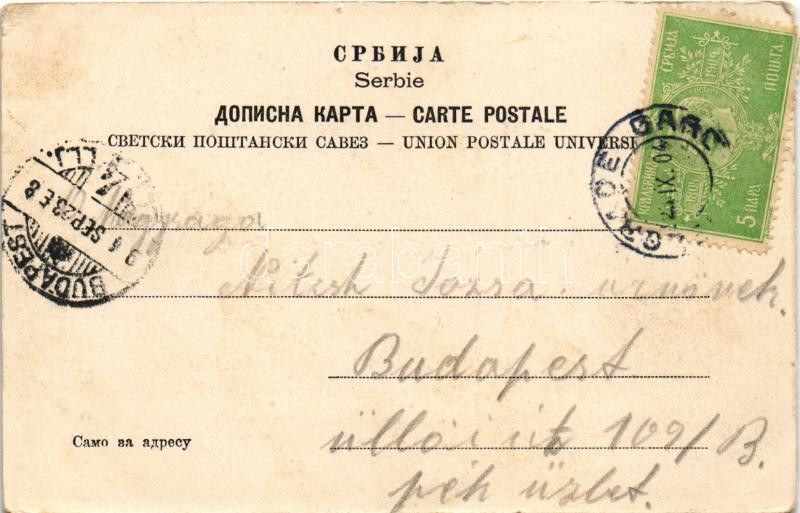 СРБИЈА
Serbie
ДОПИСНА КАРТА — CARTE POSTALE
СВЕТСКИ ПОШТАНСКИ САВЕЗ — UNION POSTALE UNIVERSE
СРБИЈА
ПОШТА
1804 1904
5 ПАРА
GARE
IX. 04
BUDAPEST
SEP 23
darabanth
Józsa úrnőnek.
Budapest
üllői út 109/B.
pék üzlet.
Само за адресу